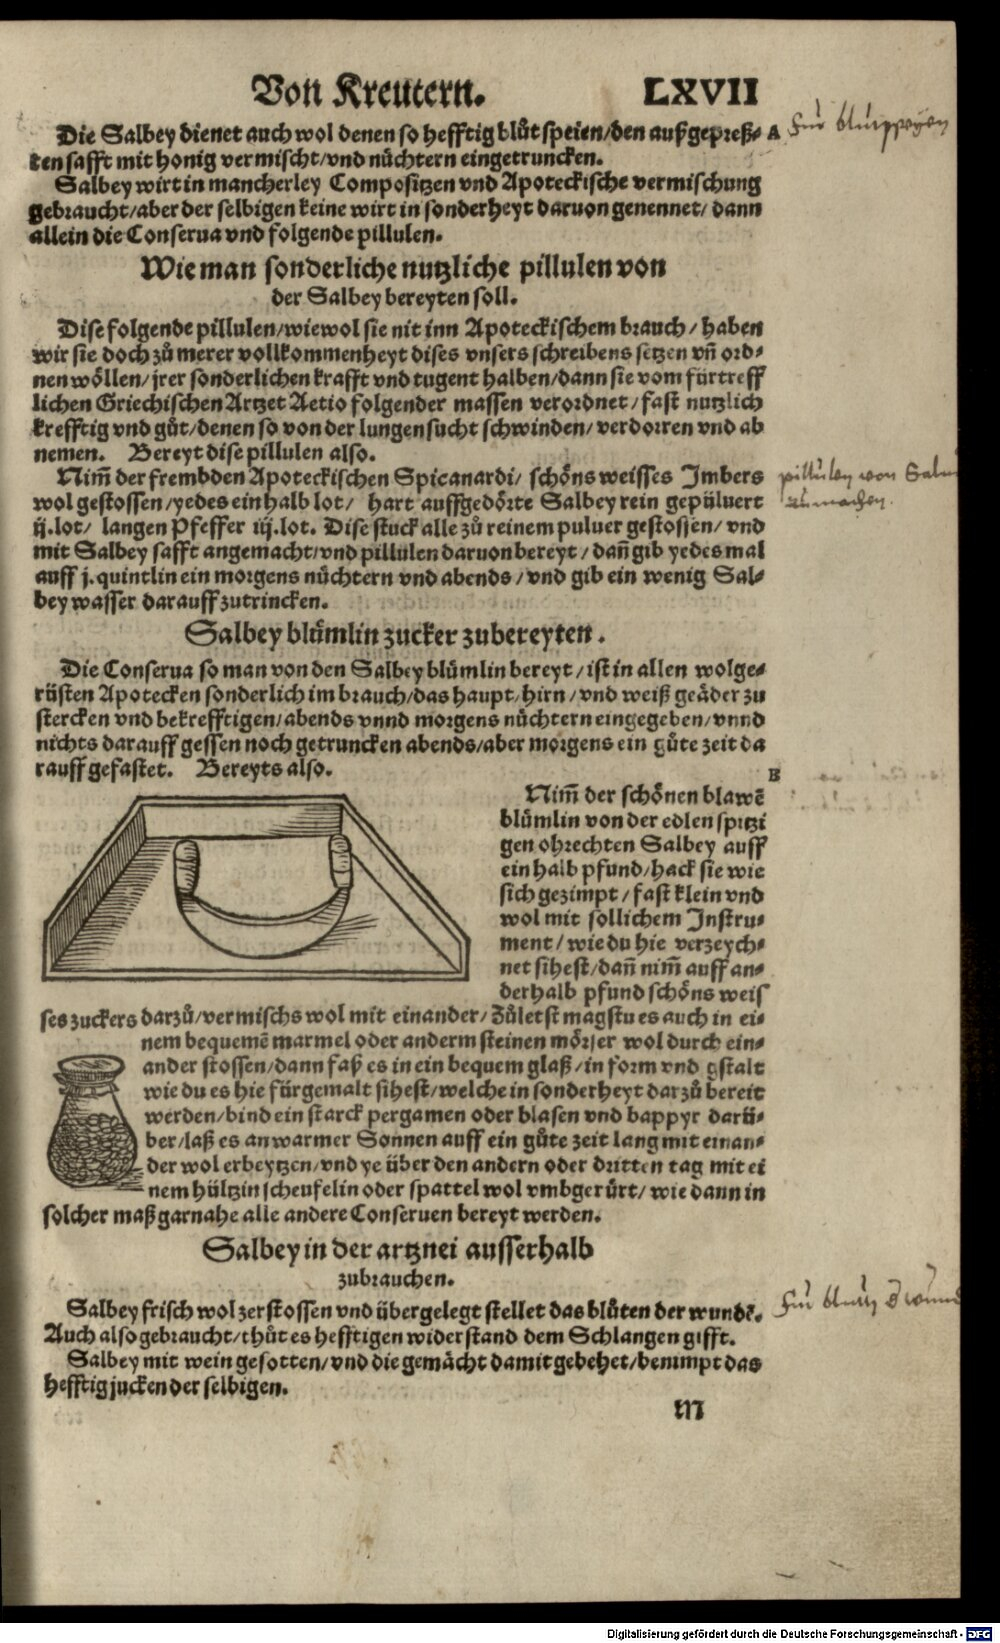 Von Kreutern. LXVII
Die Salbey dienet auch wol denen so hefftig blůt speien/den außgepreß⸗ A
ten safft mit honig vermischt/vnd nüchtern eingetruncken.
Salbey wirt in mancherley Compositzen vnd Apoteckische vermischung
gebraucht/aber der selbigen keine wirt in sonderheyt daruon genennet/ dann
allein die Conserua vnd folgende pillulen.
Wie man sonderliche nutzliche pillulen von
der Salbey bereyten soll.
Dise folgende pillulen/wiewol sie nit inn Apoteckischem brauch/ haben
wir sie doch zů merer vollkommenheyt dises vnsers schreibens setzen vñ ord⸗
nen wöllen/jrer sonderlichen krafft vnd tugent halben/dann sie vom fürtreff
lichen Griechischen Artzet Aetio folgender massen verordnet/fast nutzlich
krefftig vnd gůt/denen so von der lungensucht schwinden/verdorren vnd ab
nemen. Bereyt dise pillulen also.
Nim̃ der frembden Apoteckischen Spicanardi/ schöns weisses Imbers
wol gestossen/yedes ein halb lot/ hart auffgedörte Salbey rein gepüluert
ij.lot/ langen Pfeffer iij.lot. Dise stuck alle zů reinem puluer gestossen/vnd
mit Salbey safft angemacht/vnd pillulen daruon bereyt/dañ gib yedes mal
auff j.quintlin ein morgens nüchtern vnd abends/vnd gib ein wenig Sal⸗
bey wasser darauff zutrincken.
Salbey blümlin zucker zubereyten.
Die Conserua so man von den Salbey blümlin bereyt/ist in allen wolge⸗
rüsten Apotecken sonderlich im brauch/das haupt/hirn/vnd weiß geäder zu
stercken vnd bekrefftigen/abends vnnd morgens nüchtern eingegeben/vnnd
nichts darauff gessen noch getruncken abends/aber morgens ein gůte zeit da
rauff gefastet. Bereyts also.
B
Nim̃ der schönen blawẽ
blümlin von der edlen spitzi
gen ohrechten Salbey auff
ein halb pfund/hack sie wie
sich gezimpt/fast klein vnd
wol mit sollichem Instru⸗
ment/wie du hie verzeych⸗
net sihest/dañ nim̃ auff an⸗
derhalb pfund schöns weis
ses zuckers darzů/vermischs wol mit einander/Zůletst magstu es auch in ei⸗
nem bequemẽ marmel oder anderm steinen mörser wol durch ein⸗
ander stossen/dann faß es in ein bequem glaß/in form vnd gstalt
wie du es hie fürgemalt sihest/welche in sonderheyt darzů bereit
werden/bind ein starck pergamen oder blasen vnd bappyr darü⸗
ber/laß es an warmer Sonnen auff ein gůte zeit lang mit einan⸗
der wol erbeytzen/vnd ye über den andern oder dritten tag mit ei
nem hültzin scheufelin oder spattel wol vmbgerürt/wie dann in
solcher maß garnahe alle andere Conseruen bereyt werden.
Salbey in der artznei ausserhalb
zubrauchen.
Salbey frisch wol zerstossen vnd übergelegt stellet das blůten der wundẽ.
Auch also gebraucht/thůt es hefftigen widerstand dem Schlangen gifft.
Salbey mit wein gesotten/vnd die gemächt damit gebehet/benimpt das
hefftig jucken der selbigen.
M
Für blutspeyen
pillulen von
zůmachen.
Für
Digitalisierung gefördert durch die Deutsche Forschungsgemeinschaft - DFG